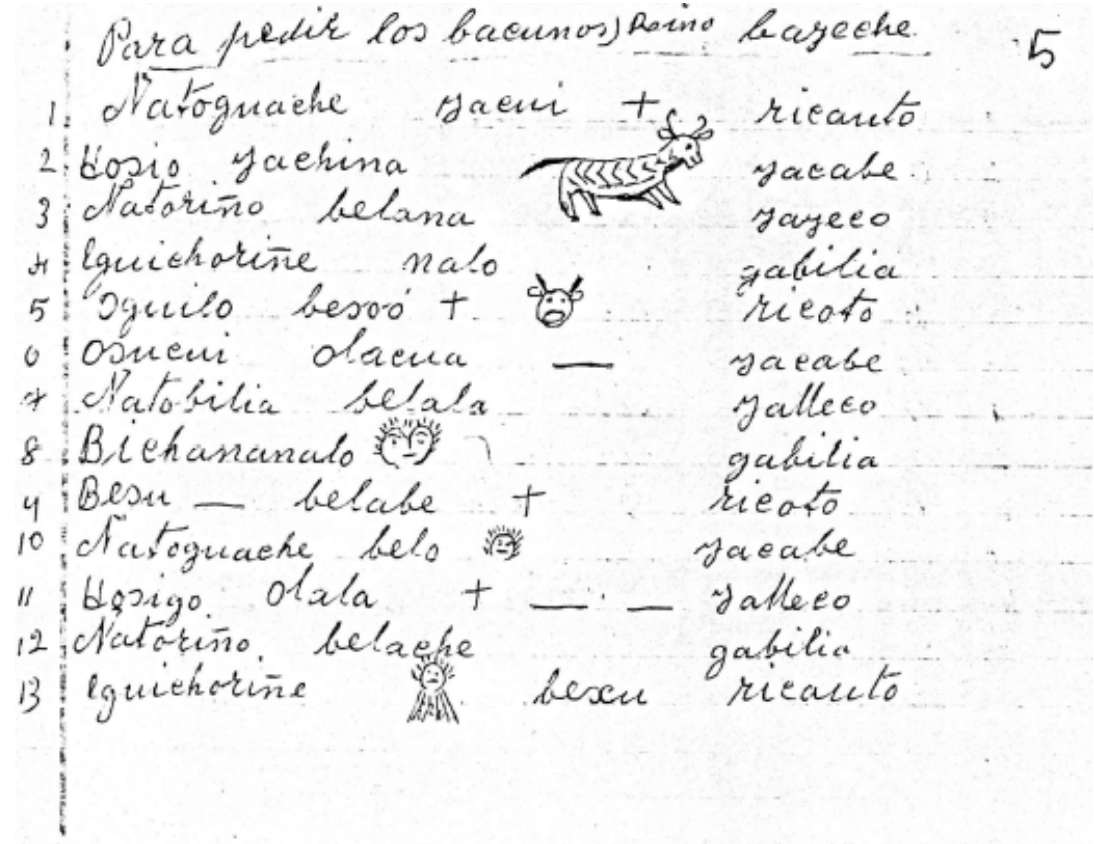 Para pedir los bacunos) Reino bazeche 5
1 Natoguache yacui + ricauto
2 Yosio yachina yacabe
3 Natoriño belana yayeco
4 lguichoriñe nalo gabilia
5 Oguilo bexoó + ricoto
6 Osucui olacua — yacabe
7 Natobilia belala yalleco
8 Bichananalo gabilia
9 Besu — belabe + ricoto
10 Natoguache belo yacabe
11 Yosigo olala + — · — yalleco
12 Natoriño belache gabilia
13 lguichoriñe bexu ricauto